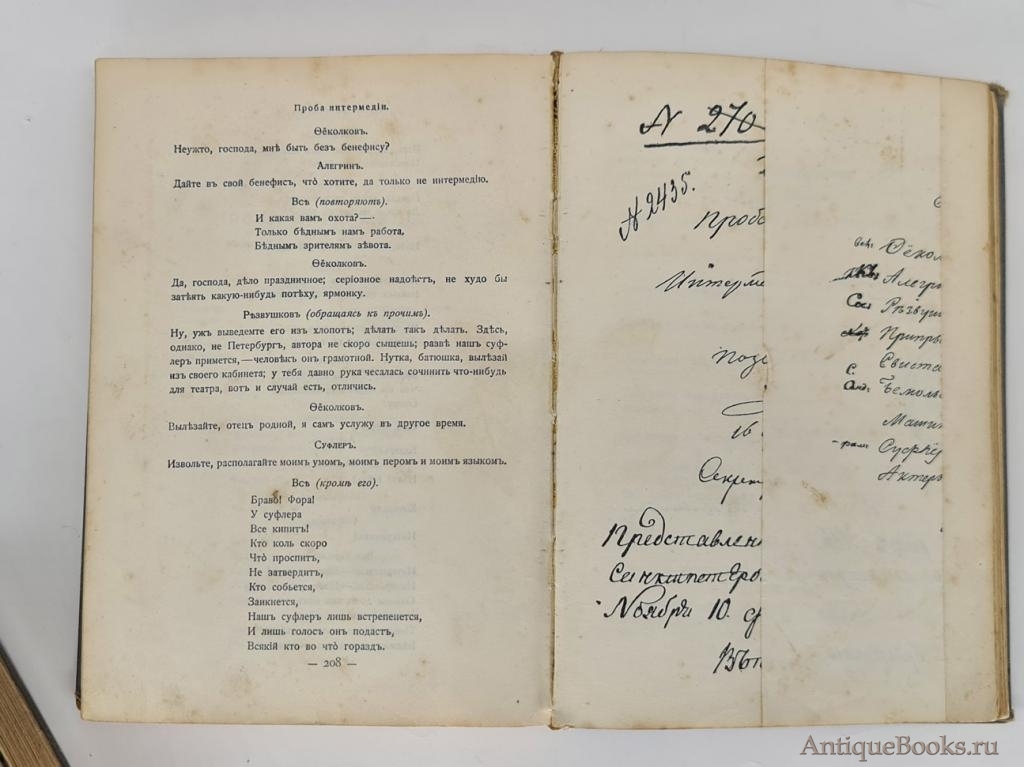 Проба интермедіи.
Ѳёколковъ.
Неужто, господа, мнѣ быть безъ бенефису?
Алегринъ.
Дайте въ свой бенефисъ, что̀ хотите, да только не интермедію.
Всѣ (повторяютъ).
И какая вамъ охота?—·
Только бѣднымъ намъ работа,
Бѣднымъ зрителямъ зѣвота.
Ѳёколковъ.
Да, господа, дѣло праздничное; серіозное надоѣстъ, не худо бы
затѣять какую-нибудь потѣху, ярмонку.
Рѣзвушковъ (обращаясь къ прочимъ).
Ну, ужъ выведемте его изъ хлопотъ; дѣлать такъ дѣлать. Здѣсь,
однако, не Петербургъ, автора не скоро сыщешь; развѣ нашъ суф-
леръ примется,—человѣкъ онъ грамотной. Нутка, батюшка, вылѣзай
изъ своего кабинета; у тебя давно рука чесалась сочинить что-нибудь
для театра, вотъ и случай есть, отличись.
Ѳёколковъ.
Вылѣзайте, отецъ родной, я самъ услужу въ другое время.
Суфлеръ.
Извольте, располагайте моимъ умомъ, моимъ перомъ и моимъ языкомъ.
Всѣ (кромѣ его).
Браво! Фора!
У суфлера
Все кипитъ!
Кто коль скоро
Что̀ проспитъ,
Не затвердитъ,
Кто собьется,
Заикнется,
Нашъ суфлеръ лишь встрепенется,
И лишь голосъ онъ подастъ,
Всякій кто во что гораздъ.
— 208 —
N 270
N 2435.
Проб
Интерме
Позв
16
Секрет
Представлен
Санктпетер
Ноября 10. ср
Въ
Ѳёкол
Алегр
Рѣзвуш
Припры
Свиста
С.
Бемоль
Маши
Суфлё
Актеры
AntiqueBooks.ru